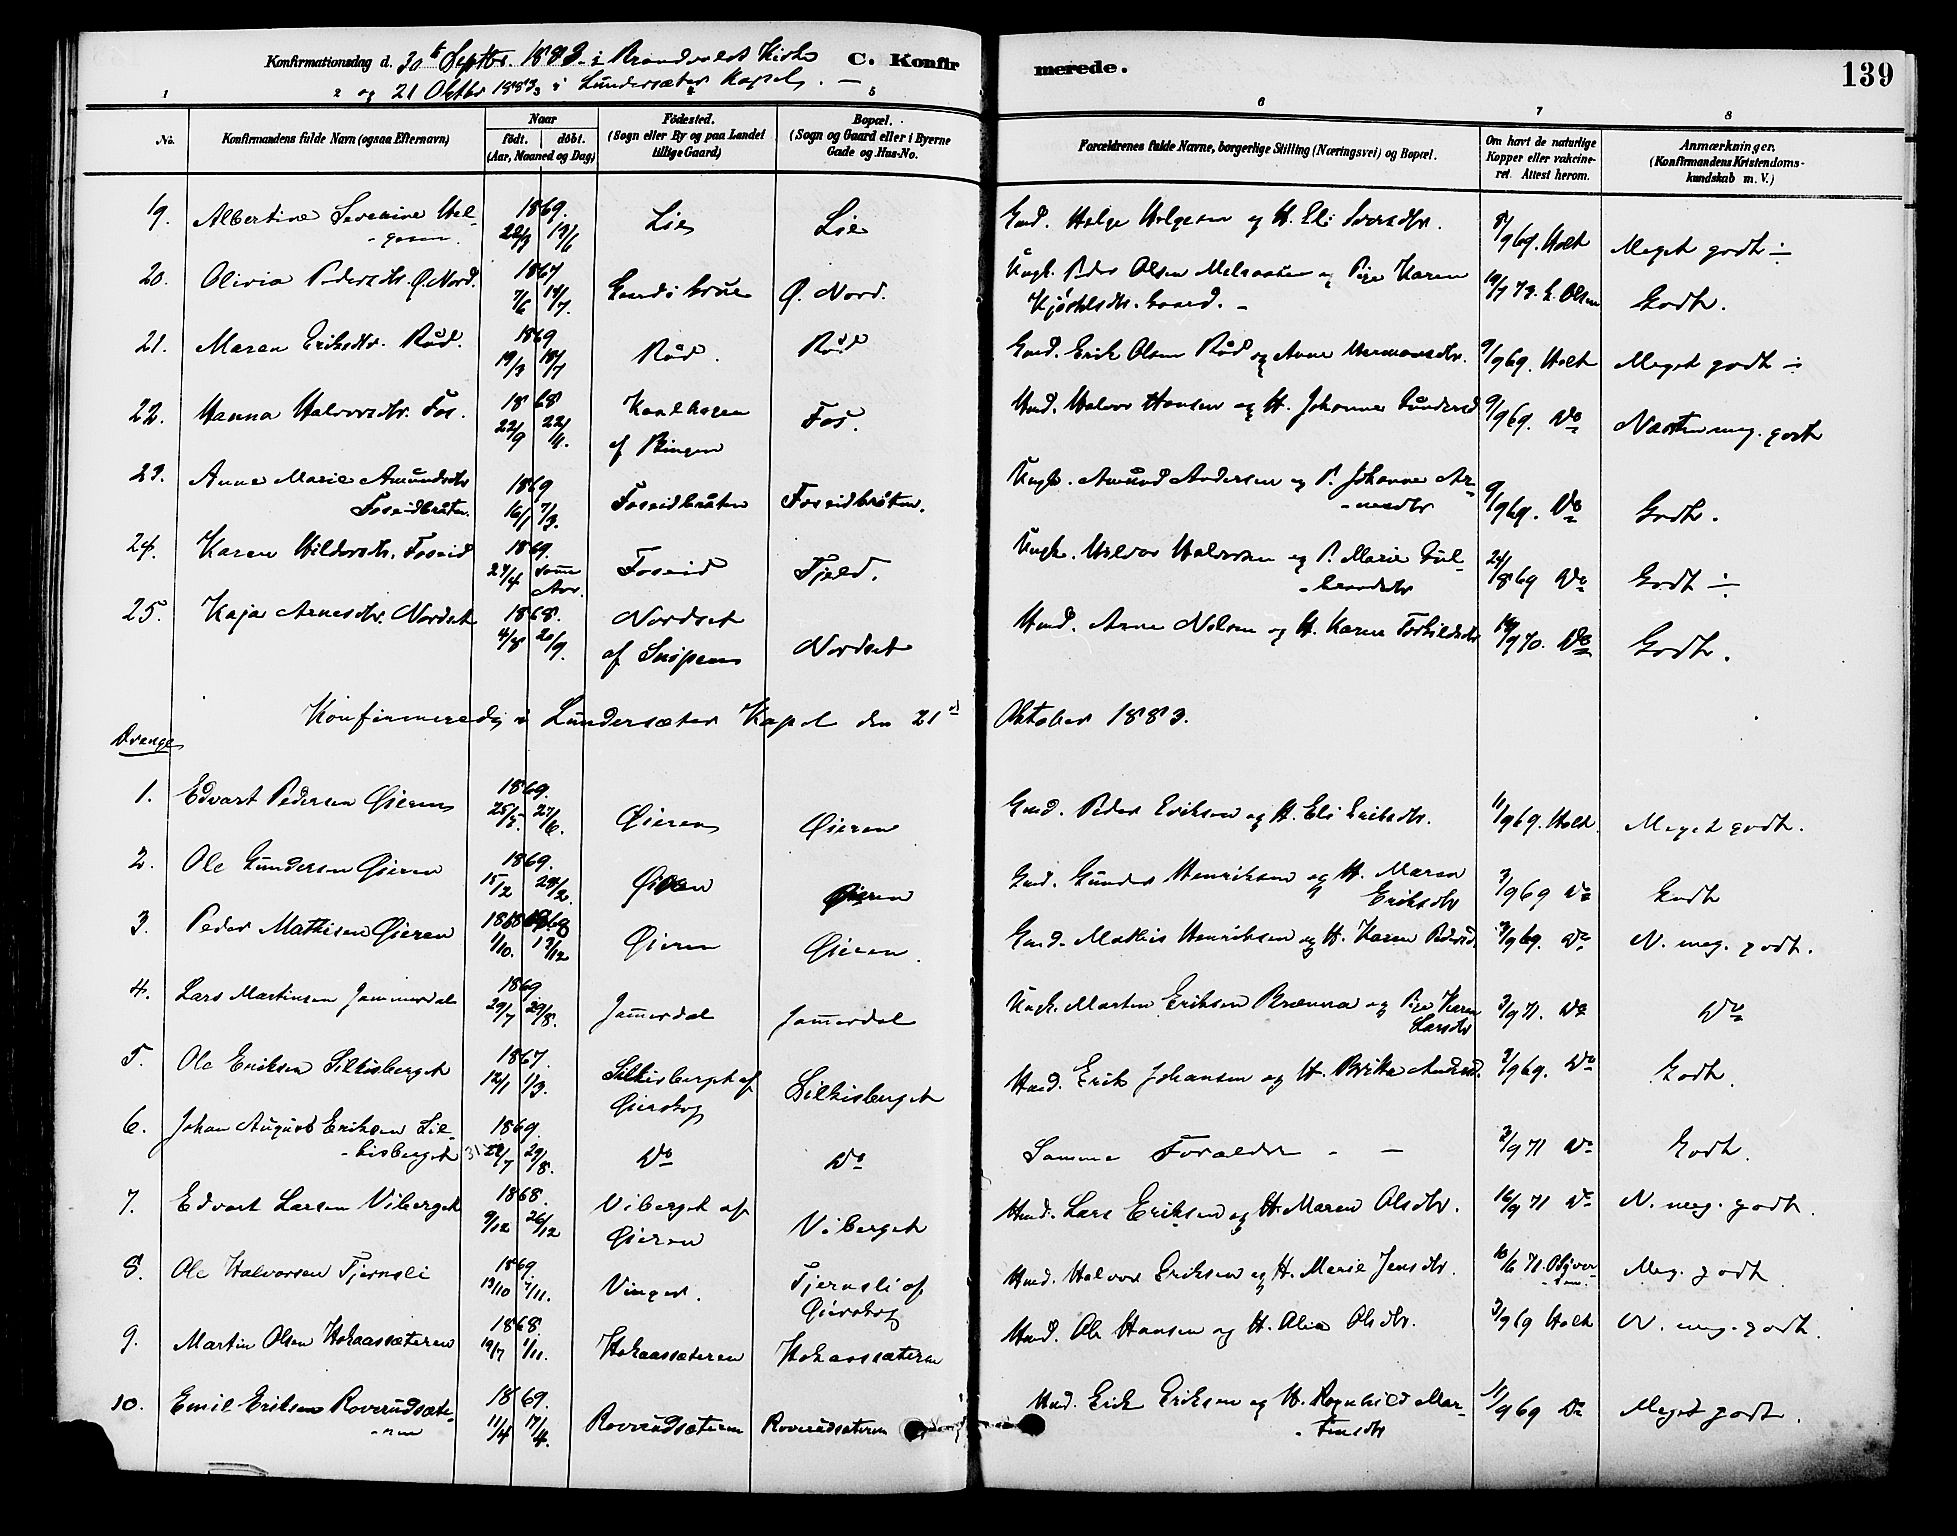 Konfirmationsdag d. 30te Septbr. 1883 i Brandvolds Kirke C. Konfirmerede. 139
og 21 Oktbr 1883 i Lundersæter Kapel. —
1 2 3 4 5 6 7 8
No. Konfirmandens fulde Navn (ogsaa Efternavn) Naar födt. döbt. (Aar, Maaned og Dag) Födested. (Sogn eller By og paa Landet tillige Gaard) Bopæl. (Sogn og Gaard eller i Byerne Gade og Hus-No. Forældrenes fulde Navne, borgerlige Stilling (Næringsvei) og Bopæl. Om havt de naturlige Kopper eller vakcineret. Attest herom. Anmærkninger. (Konfirmandens Kristendomskundskab m. V.)
19. Albertine Severine Helgesen. 1869. 13/6 Lie Lie Gmd. Helge Helgesen og H. Eli 9/69. Holt Meget godt
20. Olivia Pedersdtr. Ø. Nord. 1867 7/6 14/7. Ø. Nord. Ungk. Peder Olsen og Pige Karen 73. Olsen Godt.
21. Maren Eriksdtr. Råd. 1869 19/3 18/7 Råd. Råd Gmd. Erik Olsen Råd og Anne Hermansdtr. 9/9 69. Holt Meget godt
22. Hanna Halvorsdtr. Fos. 1868 22/9 22/11. af Bingen Fos. Hmd. Halvor Hansen og H. Johanne Gundersd 9/9 69. Do Næsten meg. godt
23. Anne Marie Amundsdtr Foseidbråten. 1869 16/1 7/3. Foseidbråten Foseidbråten. Ungk. Amund Andersen og P. Johanne Arnesdtr 9/9 69. Do Godt.
24. Karen Hildorsdtr. Foseid 1869. 27/4 samme Aar. Foseid Fjeld. Ungk. Hildor Halvorsen og P. Marie Gulbrandsdtr 24/8 69 Do Godt
25. Kaja Arnesdtr. Nordset 1868. 4/8 20/9. Nordset af Nordset Hmd. Arne Nilsen og H. Karen Torkildsdtr 9 70. Do Godt.
Konfirmerede i Lundersæter Kapel den 21de Oktober 1883.
Drenge
1. Edvart Pedersen Øieren 1869. 25/5. 27/6. Øieren Øieren Gmd. Peder Eriksen og H. Eli Eriksdtr. 11/9 69. Holt. Meget godt.
2. Ole Gundersen Øieren 1869. 15/2 28/2. Øieren Øieren Gmd. Gunder Henriksen og H. Maren Eriksdtr 3/9 69 Do Godt
3. Peder Mathisen Øieren 1868 1/10. 13/12 Øieren Øieren. Gmd. Mathis Henriksen og H. Karen Pedersd. 3/9 69. Do N. meg. godt.
4. Lars Martinsen Jammerdal 1869 29/7 29/8. Jammerdal Jammerdal Ungk. Martin Eriksen Brænna og Pige Karen Larsdtr 3/9 71. Do Do
5. Ole Eriksen Silkisberget 1867. 12/1 1/3. Silkisberget af Øierskog Silkisberget Hmd. Erik Johansen og H. Brita Andersd. 3/9 69. Do Godt.
6. Johan August Eriksen Silkisberget 1869. 31 /7 29/8. Do Do Samme Forældre - — 3/9 71 Do Godt.
7. Edvart Larsen Viberget 1868. 9/12 26/12 Viberget af Øieren Viberget Hmd. Lars Eriksen og H. Maren Olsdtr. 16/9 71 Do N. meg. godt.
8. Ole Halvorsen Tjernsli 1869 13/10 7/11. Vinger. Tjernsli af Øierskog Hmd. Halvor Eriksen og H. Marie Jensdtr. 10/6 71. Meg. godt
9. Martin Olsen Hokaassæteren 1868 19/7 1/11. Hokaassæteren Hokaassæteren Hmd. Ole Hansen og H. Olia Olsdtr. 3/9 69 Holt N. meg. godt.
10. Emil Eriksen Roverudsæteren 1869. 11/4 17/4. Roverudsæteren Roverudsæteren Hmd. Erik Eriksen og H. Ragnhild Martinsdtr 11/9 69 Do Meget godt.